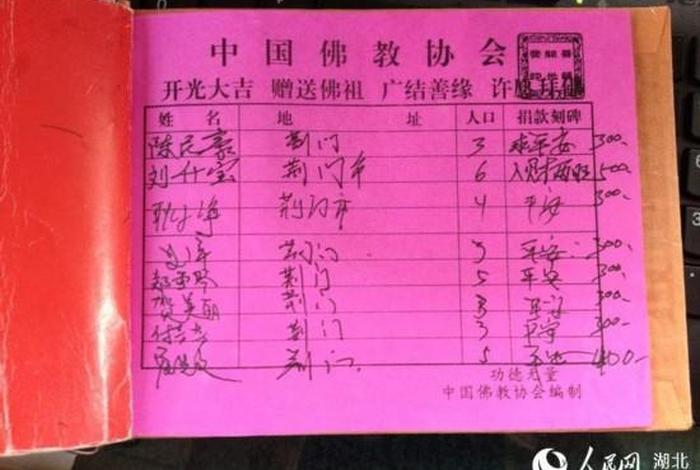 中国佛教协会
开光大吉 赠送佛祖 广结善缘 许愿拜佛
姓名 地址 人口 捐款刻碑
陈 荆门 3 求平安 300-
刘什宝 荆门市 6 人财两旺 500-
荆门市 4 平安 300-
荆门 3 平安 300-
荆门 5 平安 300-
贺美丽 荆门 3 平安 300-
荆门 3 平安 300-
荆门 5 平安 400-
功德无量
中国佛教协会编制
人民网 湖北